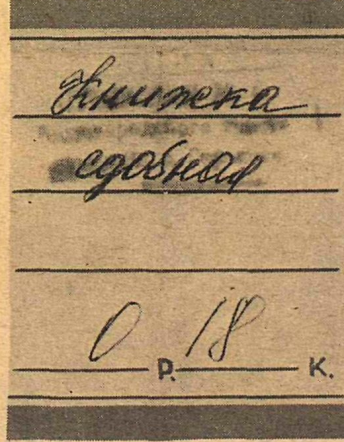 Книжка
сдобная
0 р. 18 к.